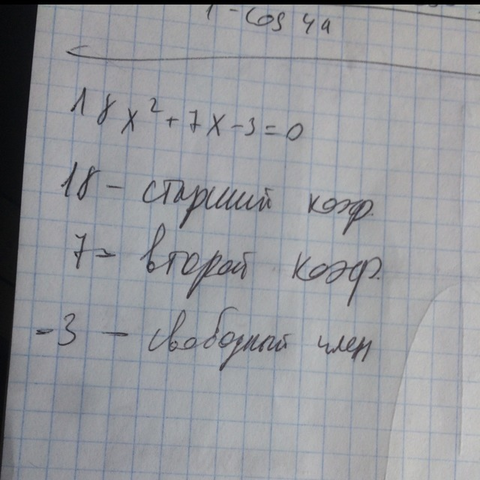 1 - cos 4a
18x² + 7x - 3 = 0
18 - старший коэф.
7 - второй коэф.
-3 - свободный член